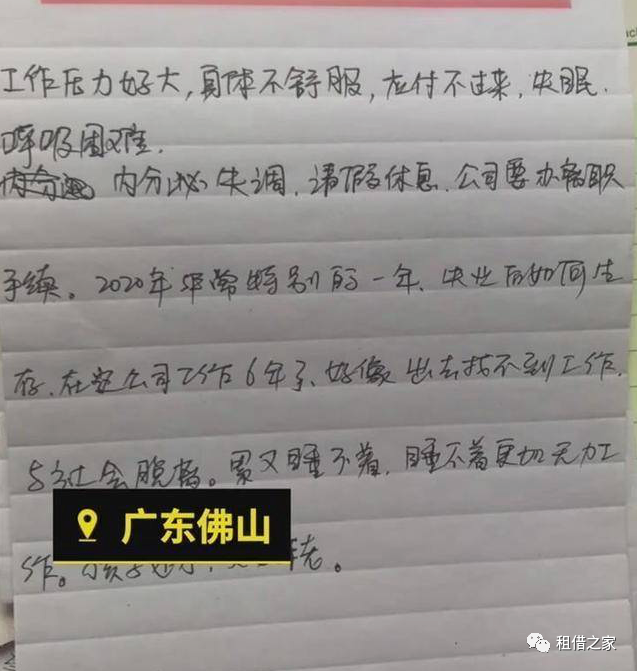 工作压力好大,身体不舒服,应付不过来,失眠.
呼吸困难.
内分泌失调,请假休息,公司要办离职
手续。2020年非常特别的一年、失业后如何生
存,在这公司工作6年了、好像出去找不到工作.
与社会脱节。累又睡不着,睡不着更加无力工
广东佛山
作。
老。
租借之家